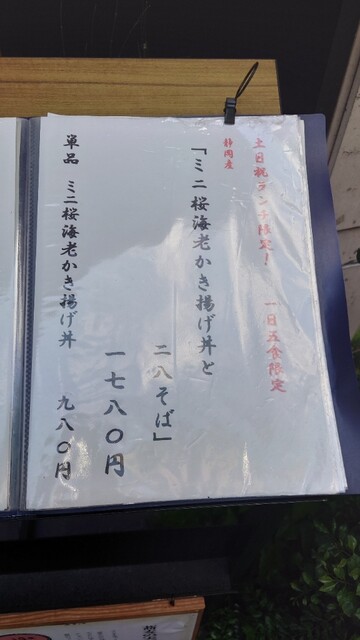 土日祝ランチ限定！　一日五食限定
静岡産
「ミニ桜海老かき揚げ丼と
二八そば」
一七八〇円
単品　ミニ桜海老かき揚げ丼　九八〇円